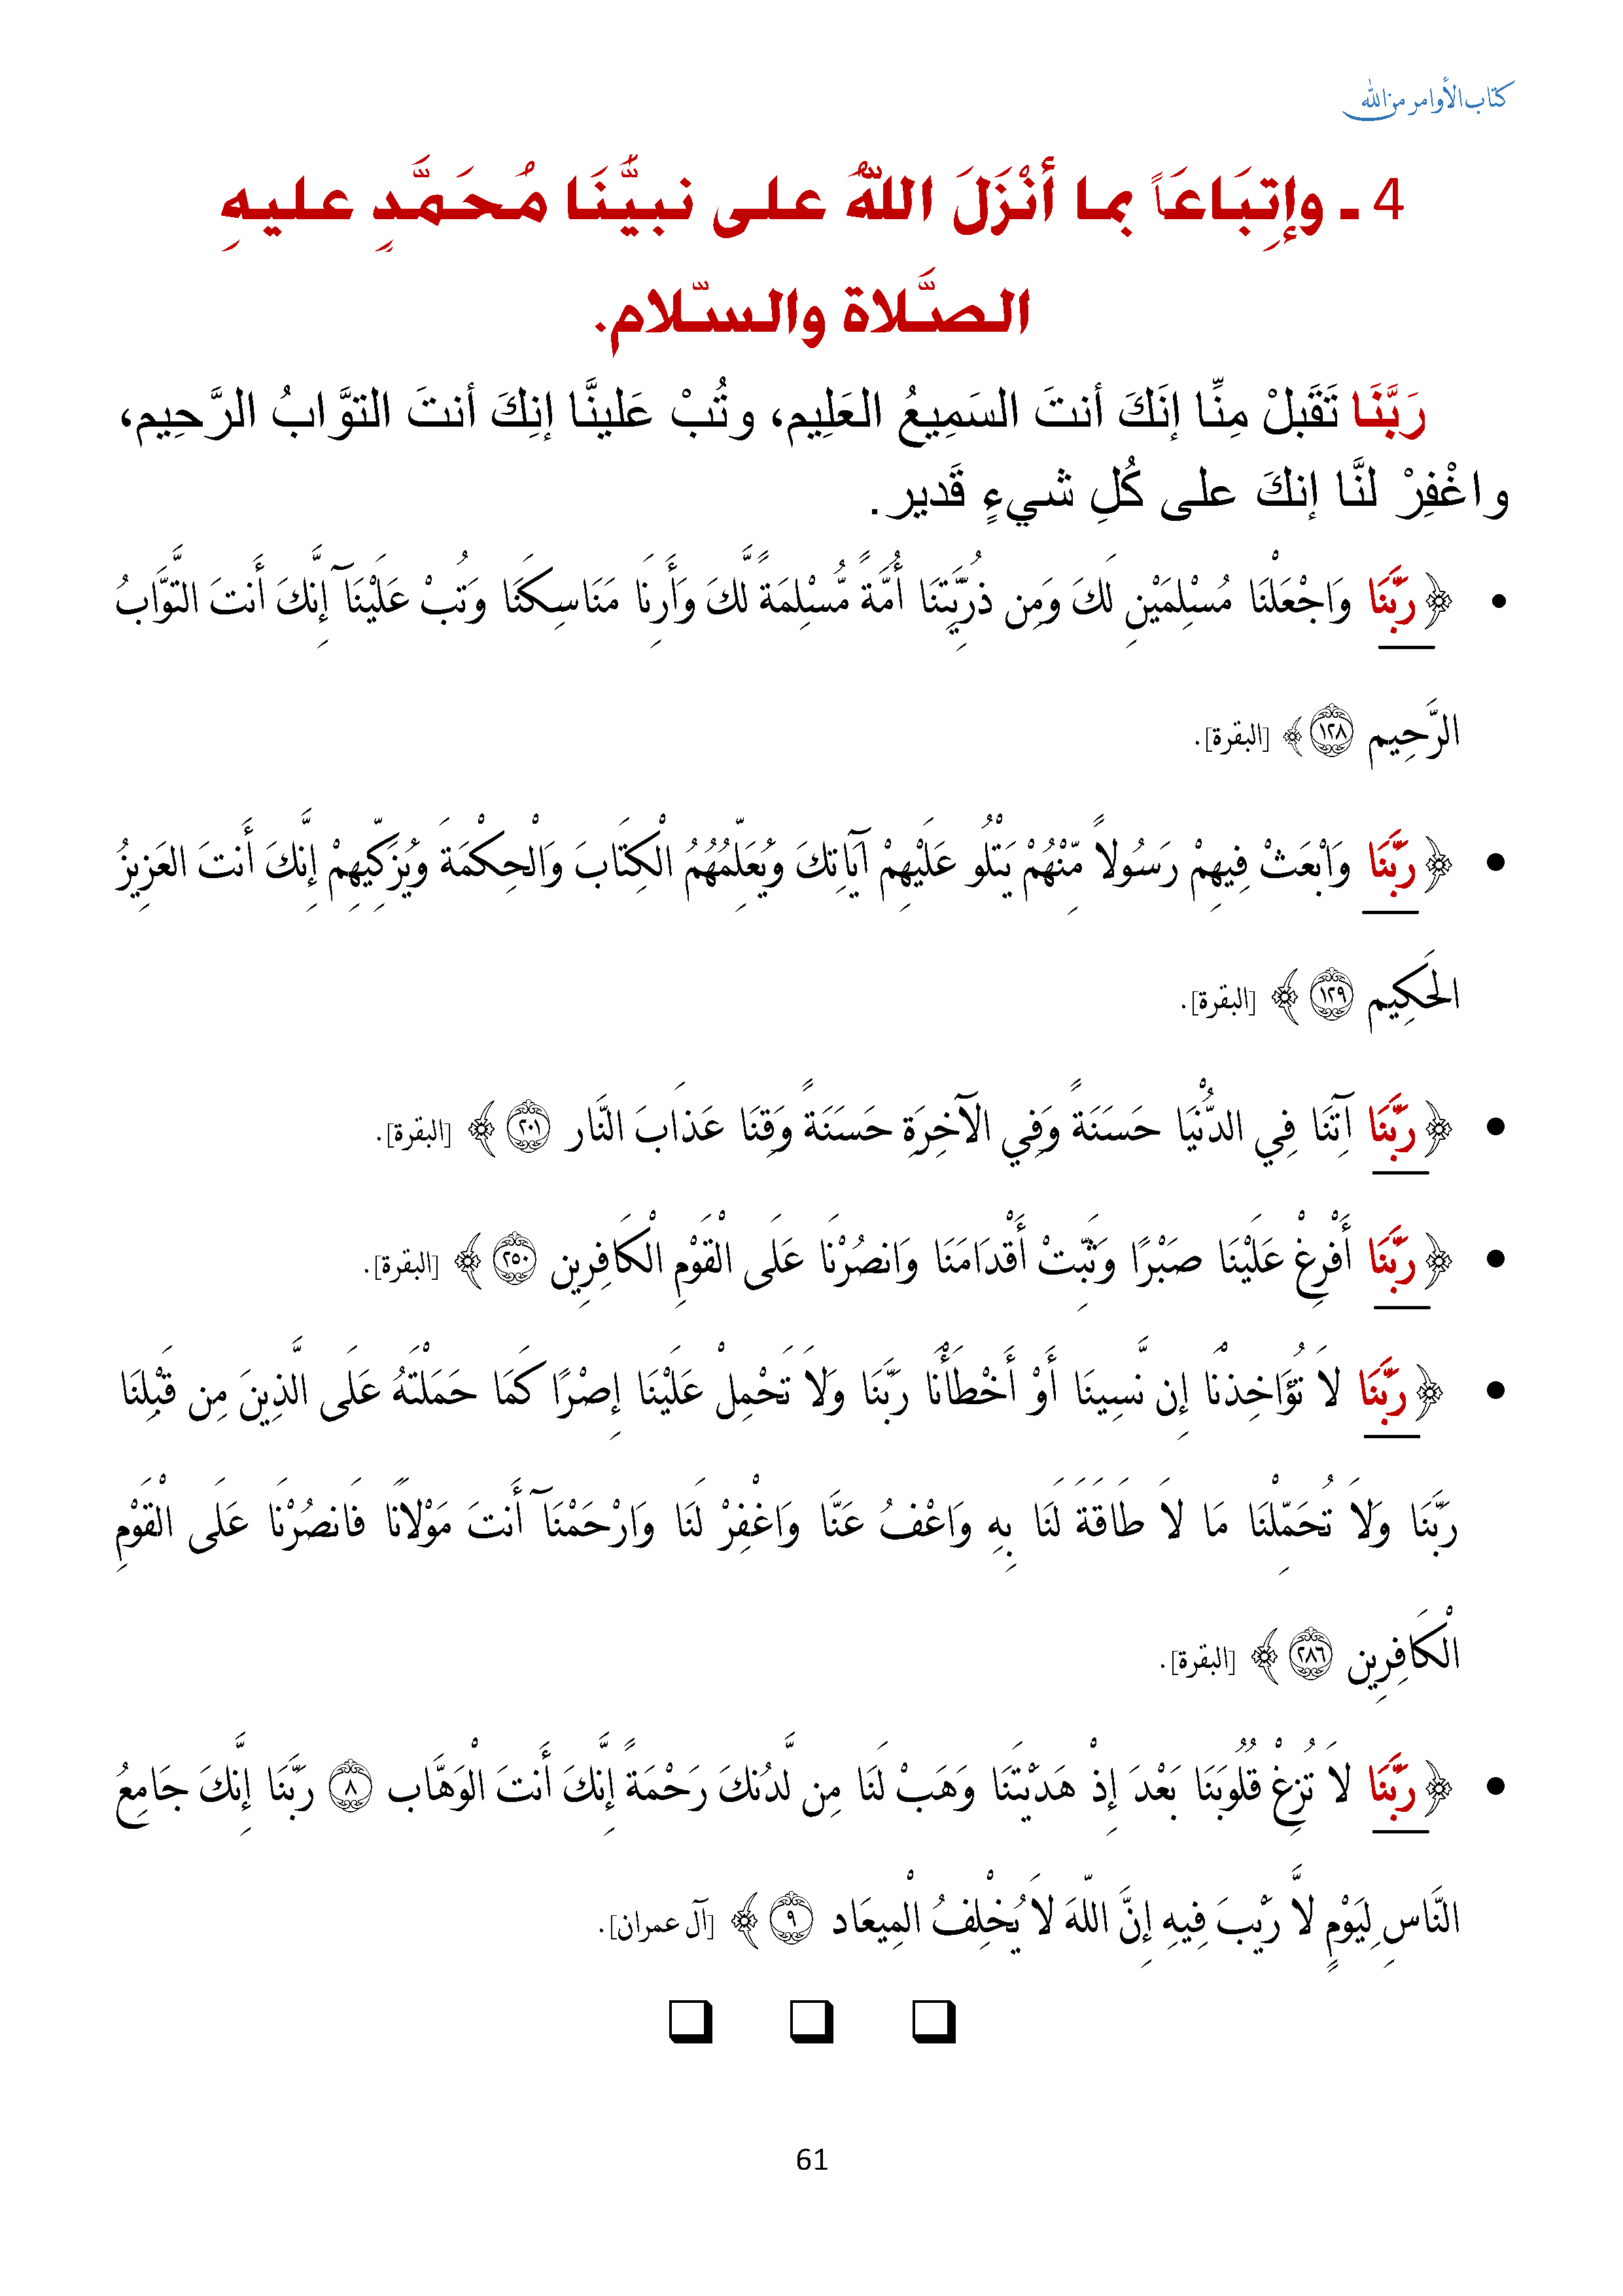 كتاب الأوامر من الله
4 ـ وإِتِبَاعَاً بما أنْزَلَ اللهُ على نبيُّنَا مُحَمَّدٍ عليهِ
الصَّلاة والسّلام.
رَبَّنَا تَقَبلْ مِنِّا إنَكَ أنتَ السَمِيعُ العَلِيم، وتُبْ عَلينَّا إنِكَ أنتَ التوَّابُ الرَّحِيم،
واغْفِرْ لنَّا إنكَ على كُلِ شيءٍ قَدير.
• ﴿رَبَّنَا وَاجْعَلْنَا مُسْلِمَيْنِ لَكَ وَمِن ذُرِّيَّتِنَا أُمَّةً مُّسْلِمَةً لَّكَ وَأَرِنَا مَنَاسِكَنَا وَتُبْ عَلَيْنَآ إِنَّكَ أَنتَ التَّوَّابُ
الرَّحِيم ١٢٨ ﴾ [البقرة].
• ﴿رَبَّنَا وَابْعَثْ فِيهِمْ رَسُولاً مِّنْهُمْ يَتْلُو عَلَيْهِمْ آيَاتِكَ وَيُعَلِّمُهُمُ الْكِتَابَ وَالْحِكْمَةَ وَيُزَكِّيهِمْ إِنَّكَ أَنتَ العَزِيزُ
الحَكِيم ١٢٩ ﴾ [البقرة].
• ﴿رَبَّنَا آتِنَا فِي الدُّنْيَا حَسَنَةً وَفِي الآخِرَةِ حَسَنَةً وَقِنَا عَذَابَ النَّار ٢٠١ ﴾ [البقرة].
• ﴿رَبَّنَا أَفْرِغْ عَلَيْنَا صَبْرًا وَثَبِّتْ أَقْدَامَنَا وَانصُرْنَا عَلَى الْقَوْمِ الْكَافِرِين ٢٥٠ ﴾ [البقرة].
• ﴿رَبَّنَا لاَ تُؤَاخِذْنَا إِن نَّسِينَا أَوْ أَخْطَأْنَا رَبَّنَا وَلاَ تَحْمِلْ عَلَيْنَا إِصْرًا كَمَا حَمَلْتَهُ عَلَى الَّذِينَ مِن قَبْلِنَا
رَبَّنَا وَلاَ تُحَمِّلْنَا مَا لاَ طَاقَةَ لَنَا بِهِ وَاعْفُ عَنَّا وَاغْفِرْ لَنَا وَارْحَمْنَآ أَنتَ مَوْلاَنَا فَانصُرْنَا عَلَى الْقَوْمِ
الْكَافِرِين ٢٨٦ ﴾ [البقرة].
• ﴿رَبَّنَا لاَ تُزِغْ قُلُوبَنَا بَعْدَ إِذْ هَدَيْتَنَا وَهَبْ لَنَا مِن لَّدُنكَ رَحْمَةً إِنَّكَ أَنتَ الْوَهَّاب ٨ رَبَّنَا إِنَّكَ جَامِعُ
النَّاسِ لِيَوْمٍ لاَّ رَيْبَ فِيهِ إِنَّ اللّهَ لاَ يُخْلِفُ الْمِيعَاد ٩ ﴾ [آل عمران].
61